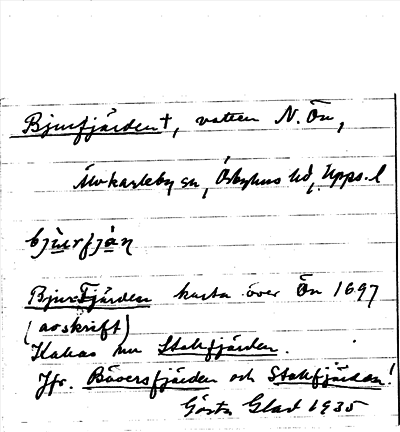 Bjurfjärden†, vatten N. Ön,
Älvkarleby sn, Örbyhus hd, Upps. l
bjurfjàṇ
Bjurfjärden karta över Ön 1697
(avskrift)
Kallas nu Stakfjärden.
Jfr. Bäversfjärden och Stakfjärden!
Gösta Glad 1935